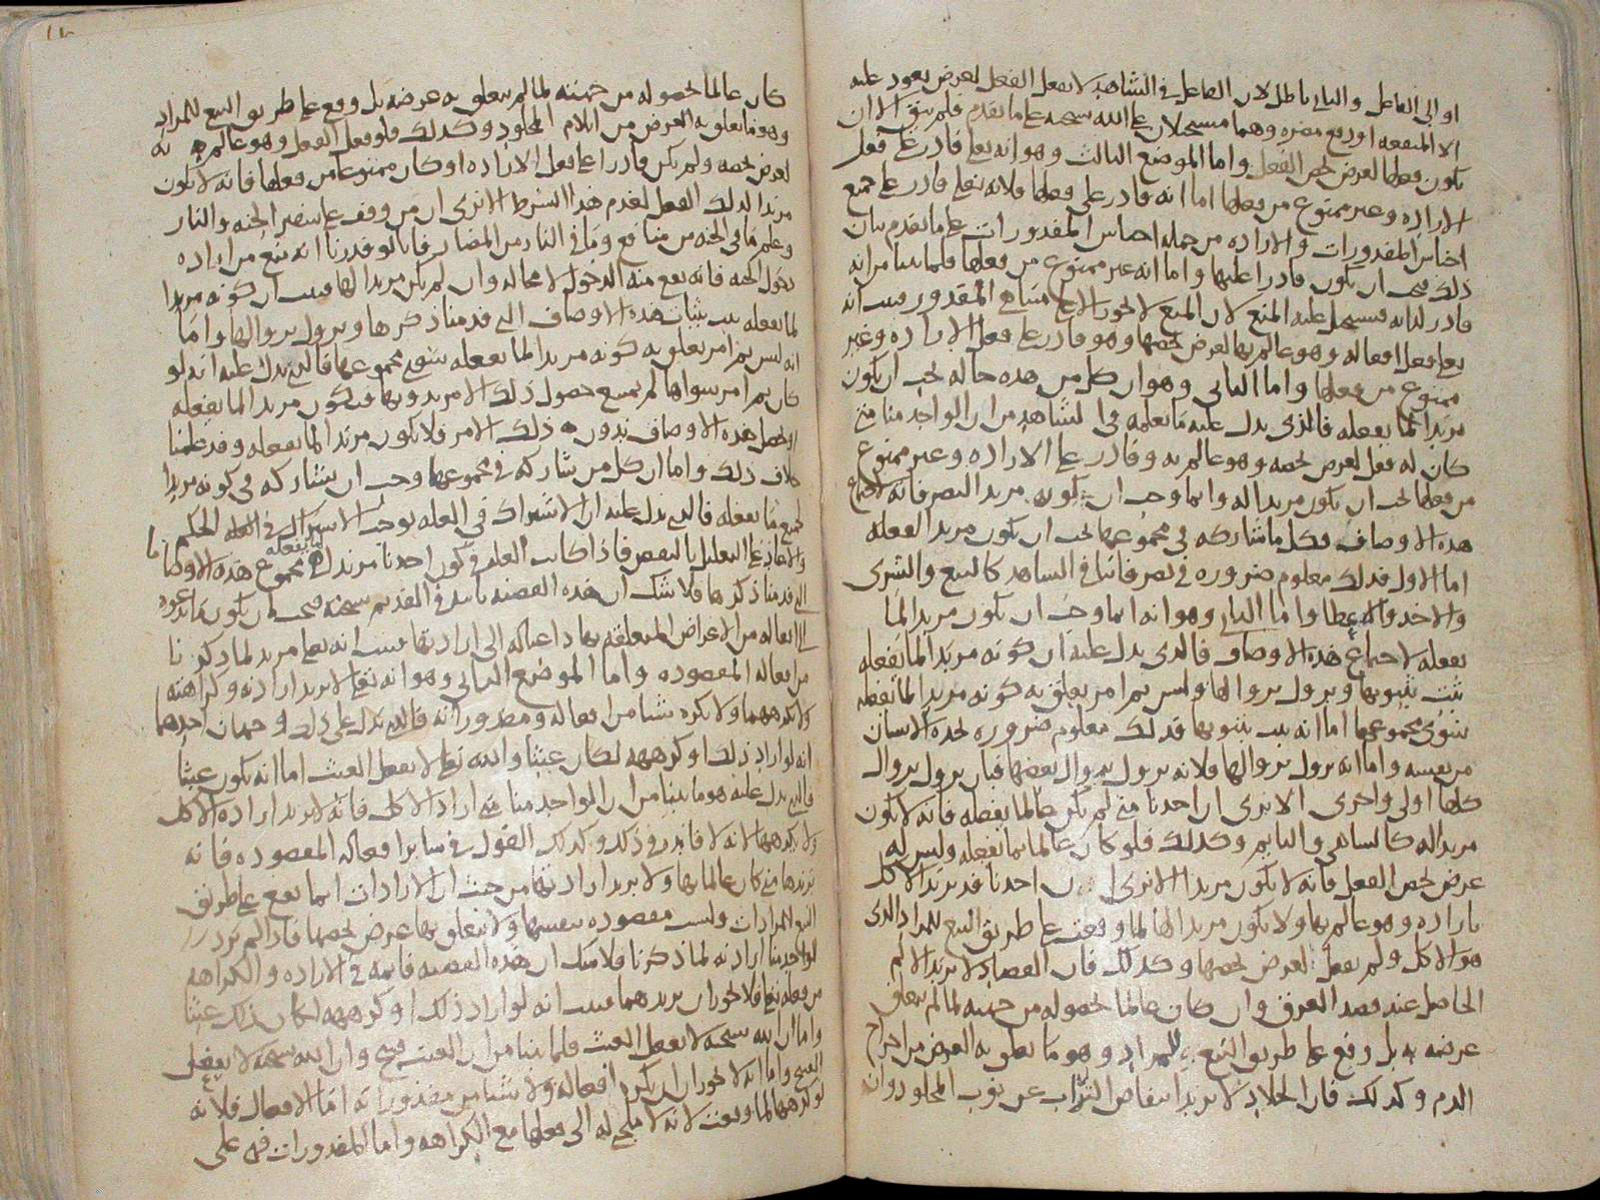 او الى الفاعل والثاني باطل لان الفاعل في الشاهد لا يفعل الفعل لغرض يعود عليه
الا لمنفعه او دفع مضره وهما مستحيلان على الله سبحنه على ما تقدم فلم يبق الا ان
يكون فعلها لغرض يخص الفعل واما الموضع الثالث وهو انه تعلى قادر على فعل
الاراده وغير ممنوع من فعلها اما انه قادر على فعلها فلانه تعلى قادر على جميع
اجناس المقدورات والاراده من جمله اجناس المقدورات على ما تقدم بيان
ذلك فيجب ان يكون قادرا عليها واما انه غير ممنوع من فعلها فلما بينا من انه
قادر لذاته فيستحيل عليه المنع لان المنع لا يجوز الا على متناهي المقدور فثبت انه
تعلى فعل افعاله وهو عالم بها لغرض يخصها وهو قادر على فعل الاراده وغير
ممنوع من فعلها واما الثاني وهو ان كل من هذه حاله يجب ان يكون
مريدا لما يفعله فالذي يدل عليه ما نعلمه في الشاهد من ان الواحد منا متى
كان له فعل لغرض يخصه وهو عالم به وقادر على الاراده وغير ممنوع
من فعلها يجب ان يكون مريدا له وانما وجب ان يكون مريدا لتصرفاته لاجتماع
هذه الاوصاف فكل ما شاركه في مجموعها يجب ان يكون مريدا لفعله
اما الاول فذلك معلوم ضروره في تصرفاتنا في الشاهد كالبيع والشرى
والاخذ والاعطا واما الثاني وهو انه انما وجب ان يكون مريدا لما
يفعله لاجتماع هذه الاوصاف فالذي يدل عليه ان كونه مريدا لما يفعله
ثبت بثبوتها ويزول بزوالها وليس ثم امر يعلق به كونه مريدا لما يفعله
سوى مجموعها اما انه يثبت بثبوتها فذلك معلوم ضروره يجده الانسان
من نفسه واما انه يزول بزوالها فلانه يزول بزوال بعضها فبان يزول بزوال
كلها اولى واحرى الا ترى ان احدنا متى لم يكن عالما بما يفعله فانه لا يكون
مريدا له كالساهي والنايم وكذلك فلو كان عالما بما يفعله وليس له
غرض يخص الفعل فانه لا يكون مريدا الا ترى ان احدنا قد يريد الاكل
باراده وهو عالم بها ولا يكون مريدا لها لما وقعت على طريق التبع للمراد الذي
هو الاكل ولم يفعل لغرض يخصها وكذلك فان الفصاد لا يريد الالم
الحاصل عند فصد العرق وان كان عالما بحصوله من جهته لما لم يتعلق
غرضه به بل وقع على طريق التبع للمراد وهو ما تعلق به الغرض من اخراج
الدم وكذلك فان الجلاد لا يريد انتفاض التراب عن ثوب المجلود وان
كان عالما بحصوله من جهته لما لم يتعلق به غرضه بل وقع على طريق التبع للمراد
وهو ما تعلق به الغرض من ايلام المجلود وكذلك فلو فعل الفعل وهو عالم به
لغرض يخصه ولم يكن قادرا على فعل الاراده او كان ممنوعا من فعلها فانه لا يكون
مريدا لذلك الفعل لعدم هذا الشرط الا ترى ان من وقف على شفير الجنه والنار
وعلم ما في الجنه من منافع وما في النار من المضار فانا لو قدرنا انه منع من اراده
دخول الجنه فانه يقع منه الدخول لا محاله وان لم يكن مريدا لها فثبت ان كونه مريدا
لما يفعله يثبت بثبات هذه الاوصاف التي قدمنا ذكرها ويزول بزوالها واما
انه ليس ثم امر يعلق به كونه مريدا لما يفعله سوى مجموعها فالذي يدل عليه انه لو
كان ثم امر سواها لم يمتنع حصول ذلك الامر دونها فيكون مريدا لما يفعله
او تحصل هذه الاوصاف بدون ذلك الامر فلا يكون مريدا لما يفعله وقد علمنا
خلاف ذلك واما ان كل من شاركه في مجموعها وجب ان يشاركه في كونه مريدا
لجميع ما يفعله فالذي يدل عليه ان الاشتراك في العله يوجب الاشتراك في الحكم
والا عاد على التعليل بالنقض فاذا كانت العله في كون احدنا مريدا لما يفعله مجموع هذه الاوصاف
التي قدمنا ذكرها فلا شك ان هذه القضيه ثابته في القديم سبحنه فيجب ان يكون
افعاله من الاغراض المتعلقه بها داعيا له الى ارادتها فثبت انه تعلى مريد لما ذكرنا
من افعاله المقصوده واما الموضع الثاني وهو انه تعلى لا يريد ارادته وكراهته
ولا يكرههما ولا يكره شيا من افعاله ومقدوراته فالذي يدل على ذلك وجهان احدهما
انه لو اراد ذلك او كرهه لكان عبثا والله تعلى لا يفعل العبث اما انه يكون عبثا
فالذي يدل عليه هو ما بينا من ان الواحد منا متى اراد الاكل فانه لا يريد اراده الاكل
ولا يكرهها لانه لا فايده في ذلك وكذلك القول في سائر افعاله المقصوده فانه
يريدها متى كان عالما بها ولا يريد ارادتها من حيث ان الارادات انما تقع على طريق
التبع للمرادات وليست مقصوده بنفسها ولا يتعلق بها غرض يخصها فاذا لم يرد
الواحد منا ارادته لما ذكرنا فلا شك ان هذه القضيه قائمه في الاراده والكراهه
من فعله تعلى فلا يجوز ان يريدهما فثبت انه لو اراد ذلك او كرهه لكان ذلك عبثا
واما ان الله سبحنه لا يفعل العبث فلما بينا من ان العبث قبيح وان الله سبحنه لا يفعل
القبيح واما انه لا يجوز ان يكره افعاله ولا شيا من مقدوراته اما الافعال فلانه
لو كرهها لما وقعت لانه لا ملجئ له الى فعلها مع الكراهه واما المقدورات فهي على